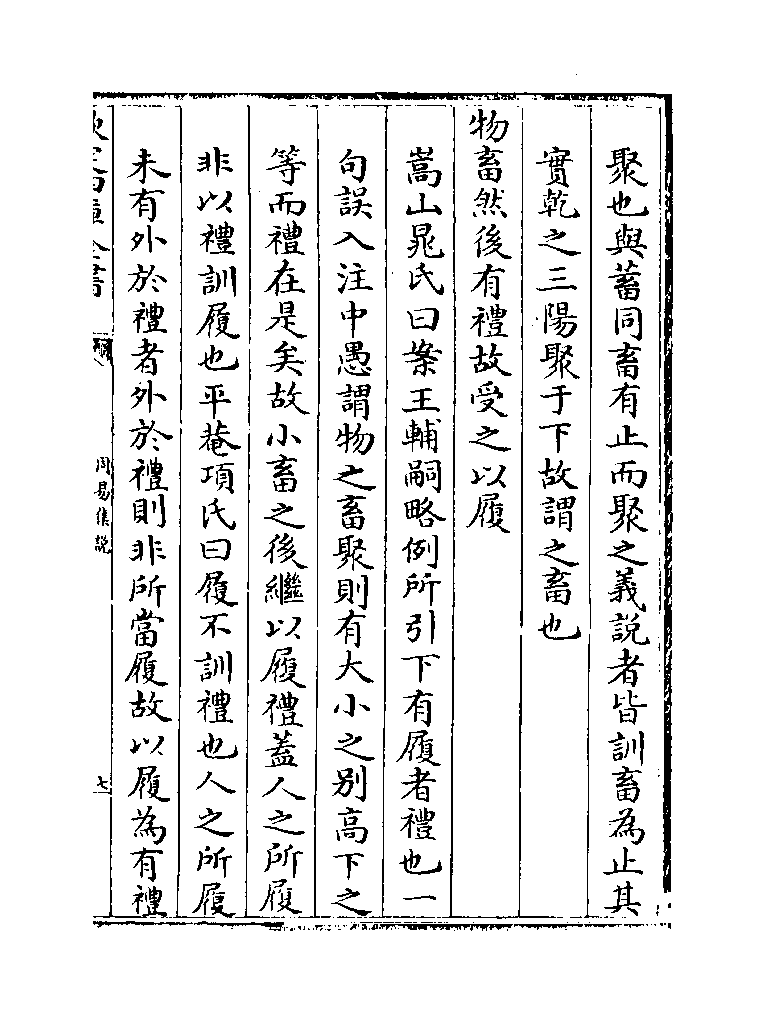 聚也與蓄同畜有止而聚之義説者皆訓畜為止其
實乾之三陽聚于下故謂之畜也
物畜然後有禮故受之以履
嵩山晁氏曰案王輔嗣略例所引下有履者禮也一
句誤入注中愚謂物之畜聚則有大小之别高下之
等而禮在是矣故小畜之後繼以履禮蓋人之所履
非以禮訓履也平菴項氏曰履不訓禮也人之所履
未有外於禮者外於禮則非所當履故以履為有禮
欽定四庫全書
周易集説
七